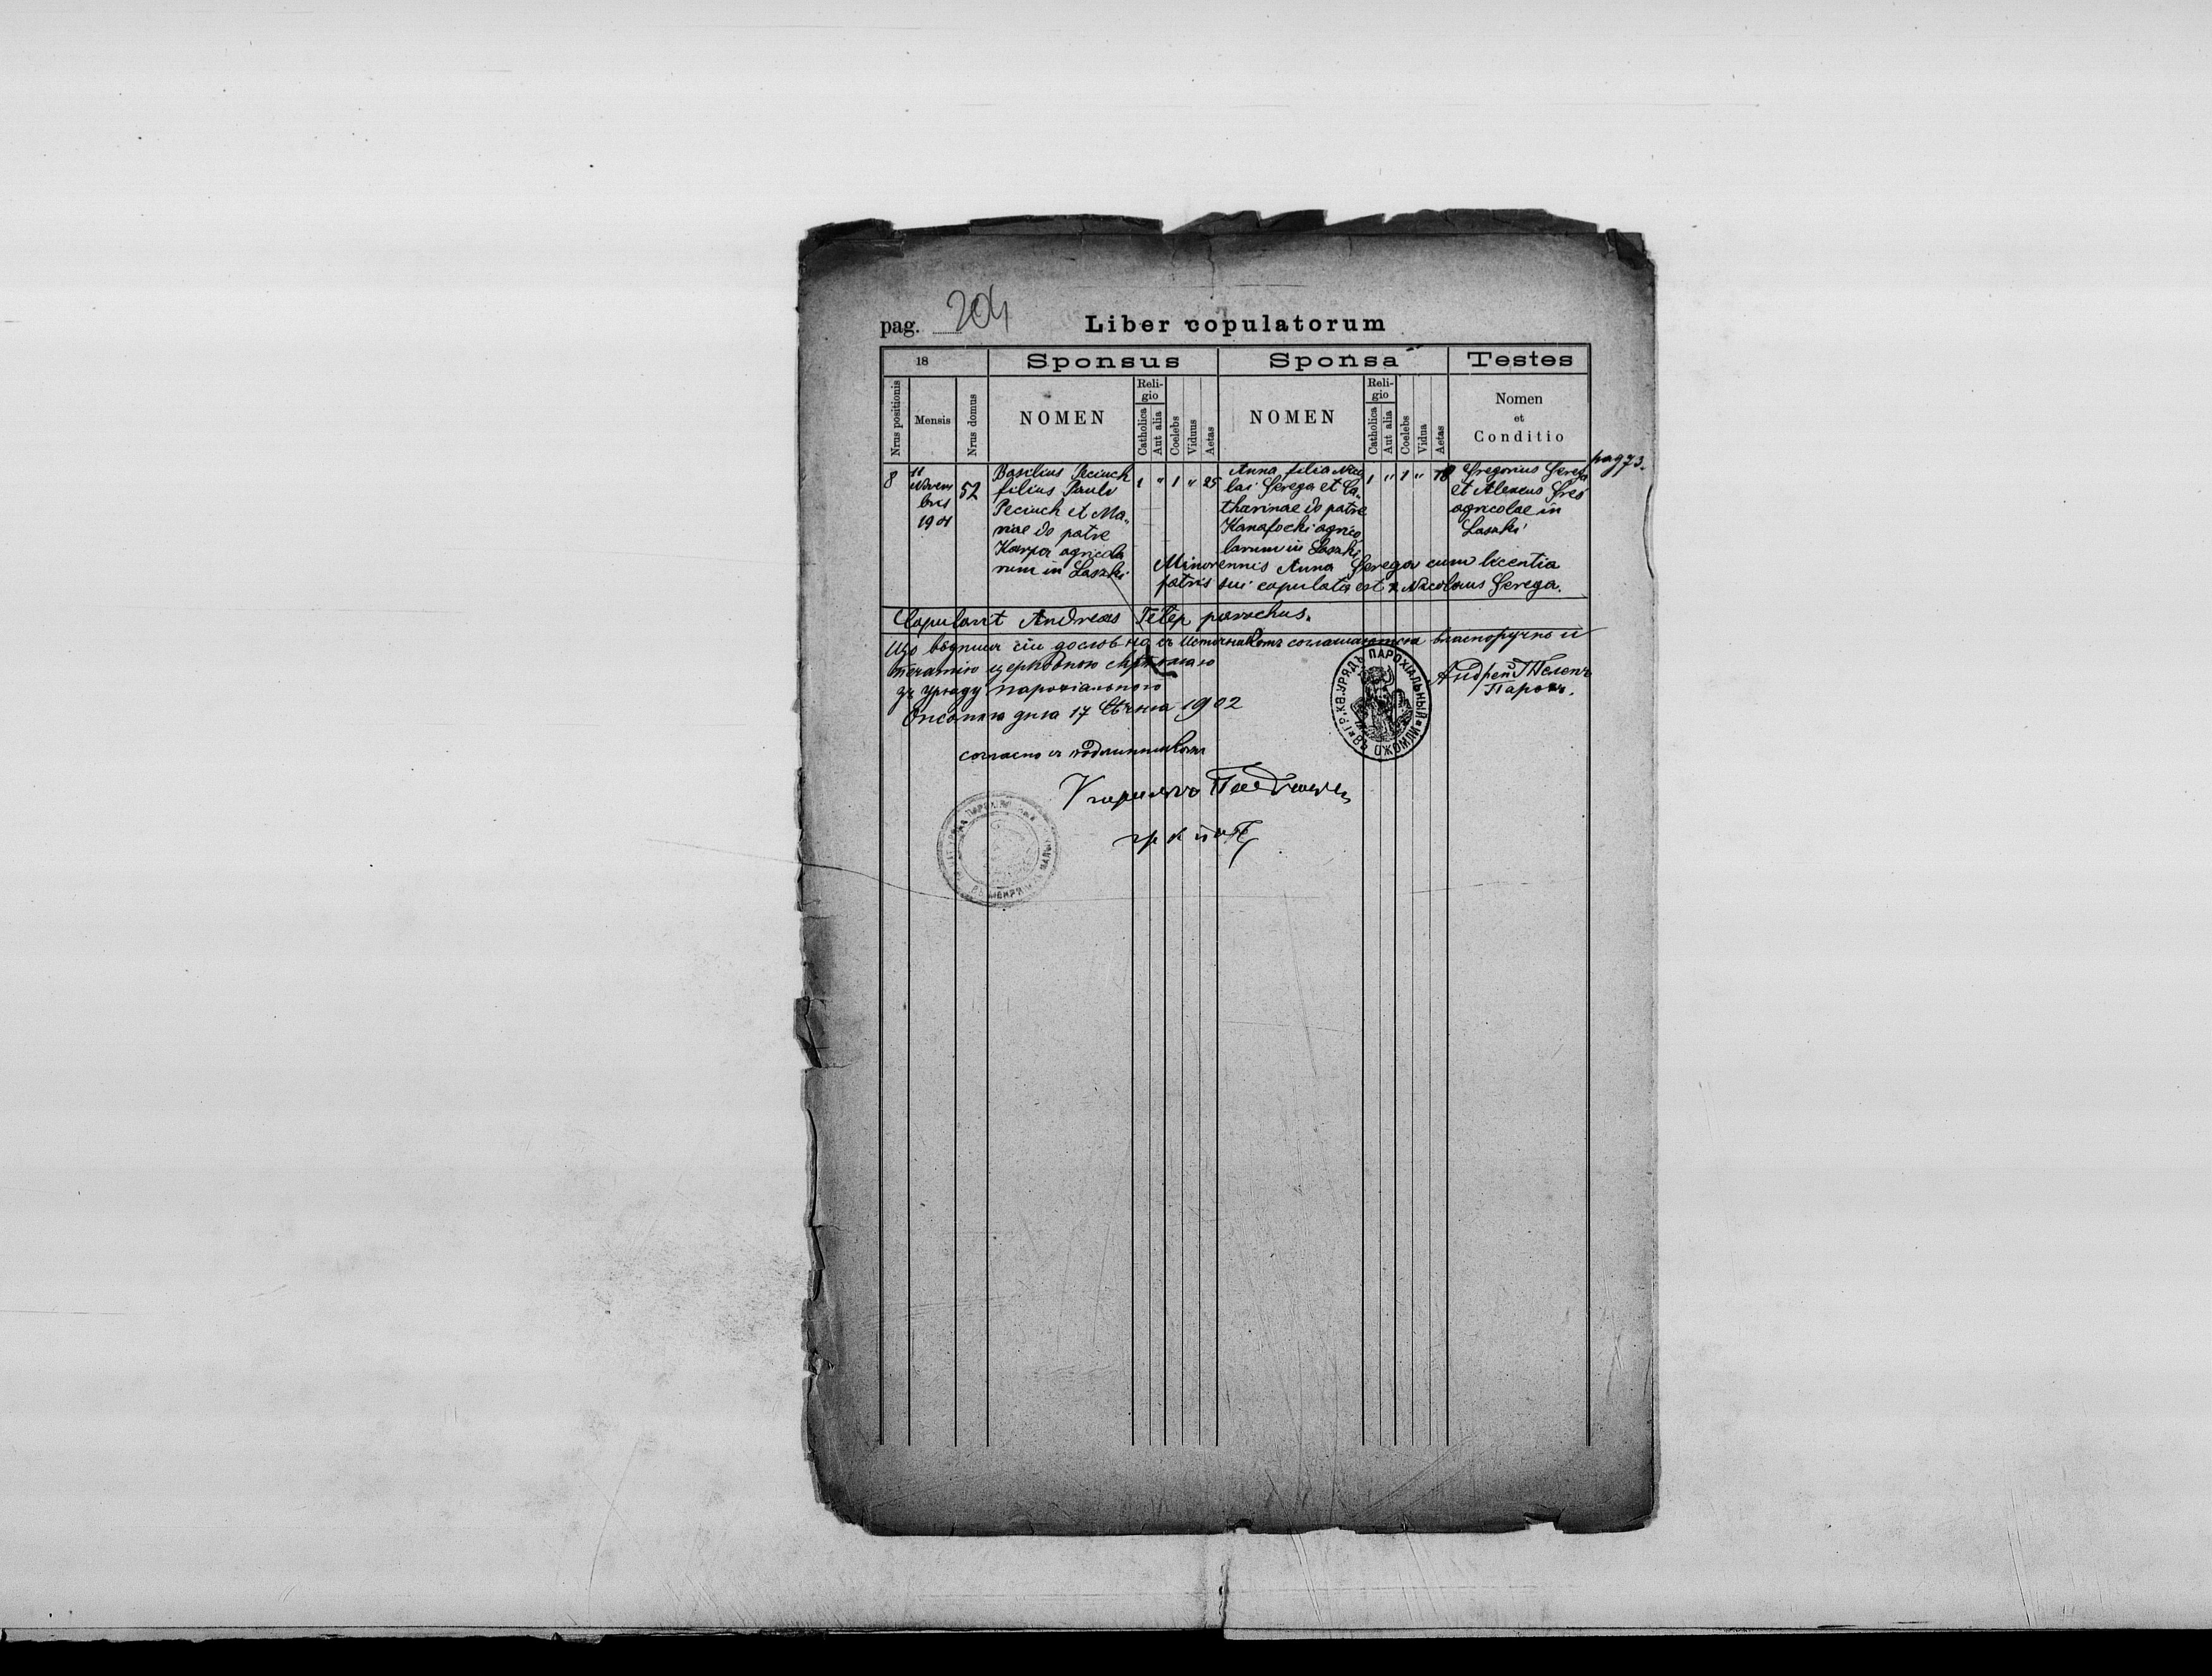 pag. 204
Liber copulatorum
18 Sponsus Sponsa Testes
Nrus positionis Mensis Nrus domus NOMEN Religio Catholica Aut alia Coelebs Viduus Aetas NOMEN Religio Catholica Aut alia Coelebs Vidua Aetas Nomen et Conditio
pag 73.
8
11
Novem
bris
1901
52
Basilius Peciuch
filius Pauli
Peciuch et Ma„
riae de patre
Karpa agricola
rum in Laszki
1 " 1 " 25
Anna filia Nico
lai Gerega et Ca„
tharinae de patre
Kanafocki agrico
larum in Laszki
1 " 1 " 18
Gregorius Gerega
et Alexius Greś
agricolae in
Laszki
Minorennis Anna Gerega cum licentia
patris sui copulata est Nicolaus Gerega.
Copulavit Andreas Telep parochus.
Що выпись сіи дословно съ источникомъ соглашаются власноручно и
печатію церковною
зъ уряду парохіального
дня 17 Сѣчня 1902
Андрей Телепъ
Парохъ.
ГР. КВ. УРЯДЪ ПАРОХІАЛЬНЫЙ
согласно съ подлинникомъ